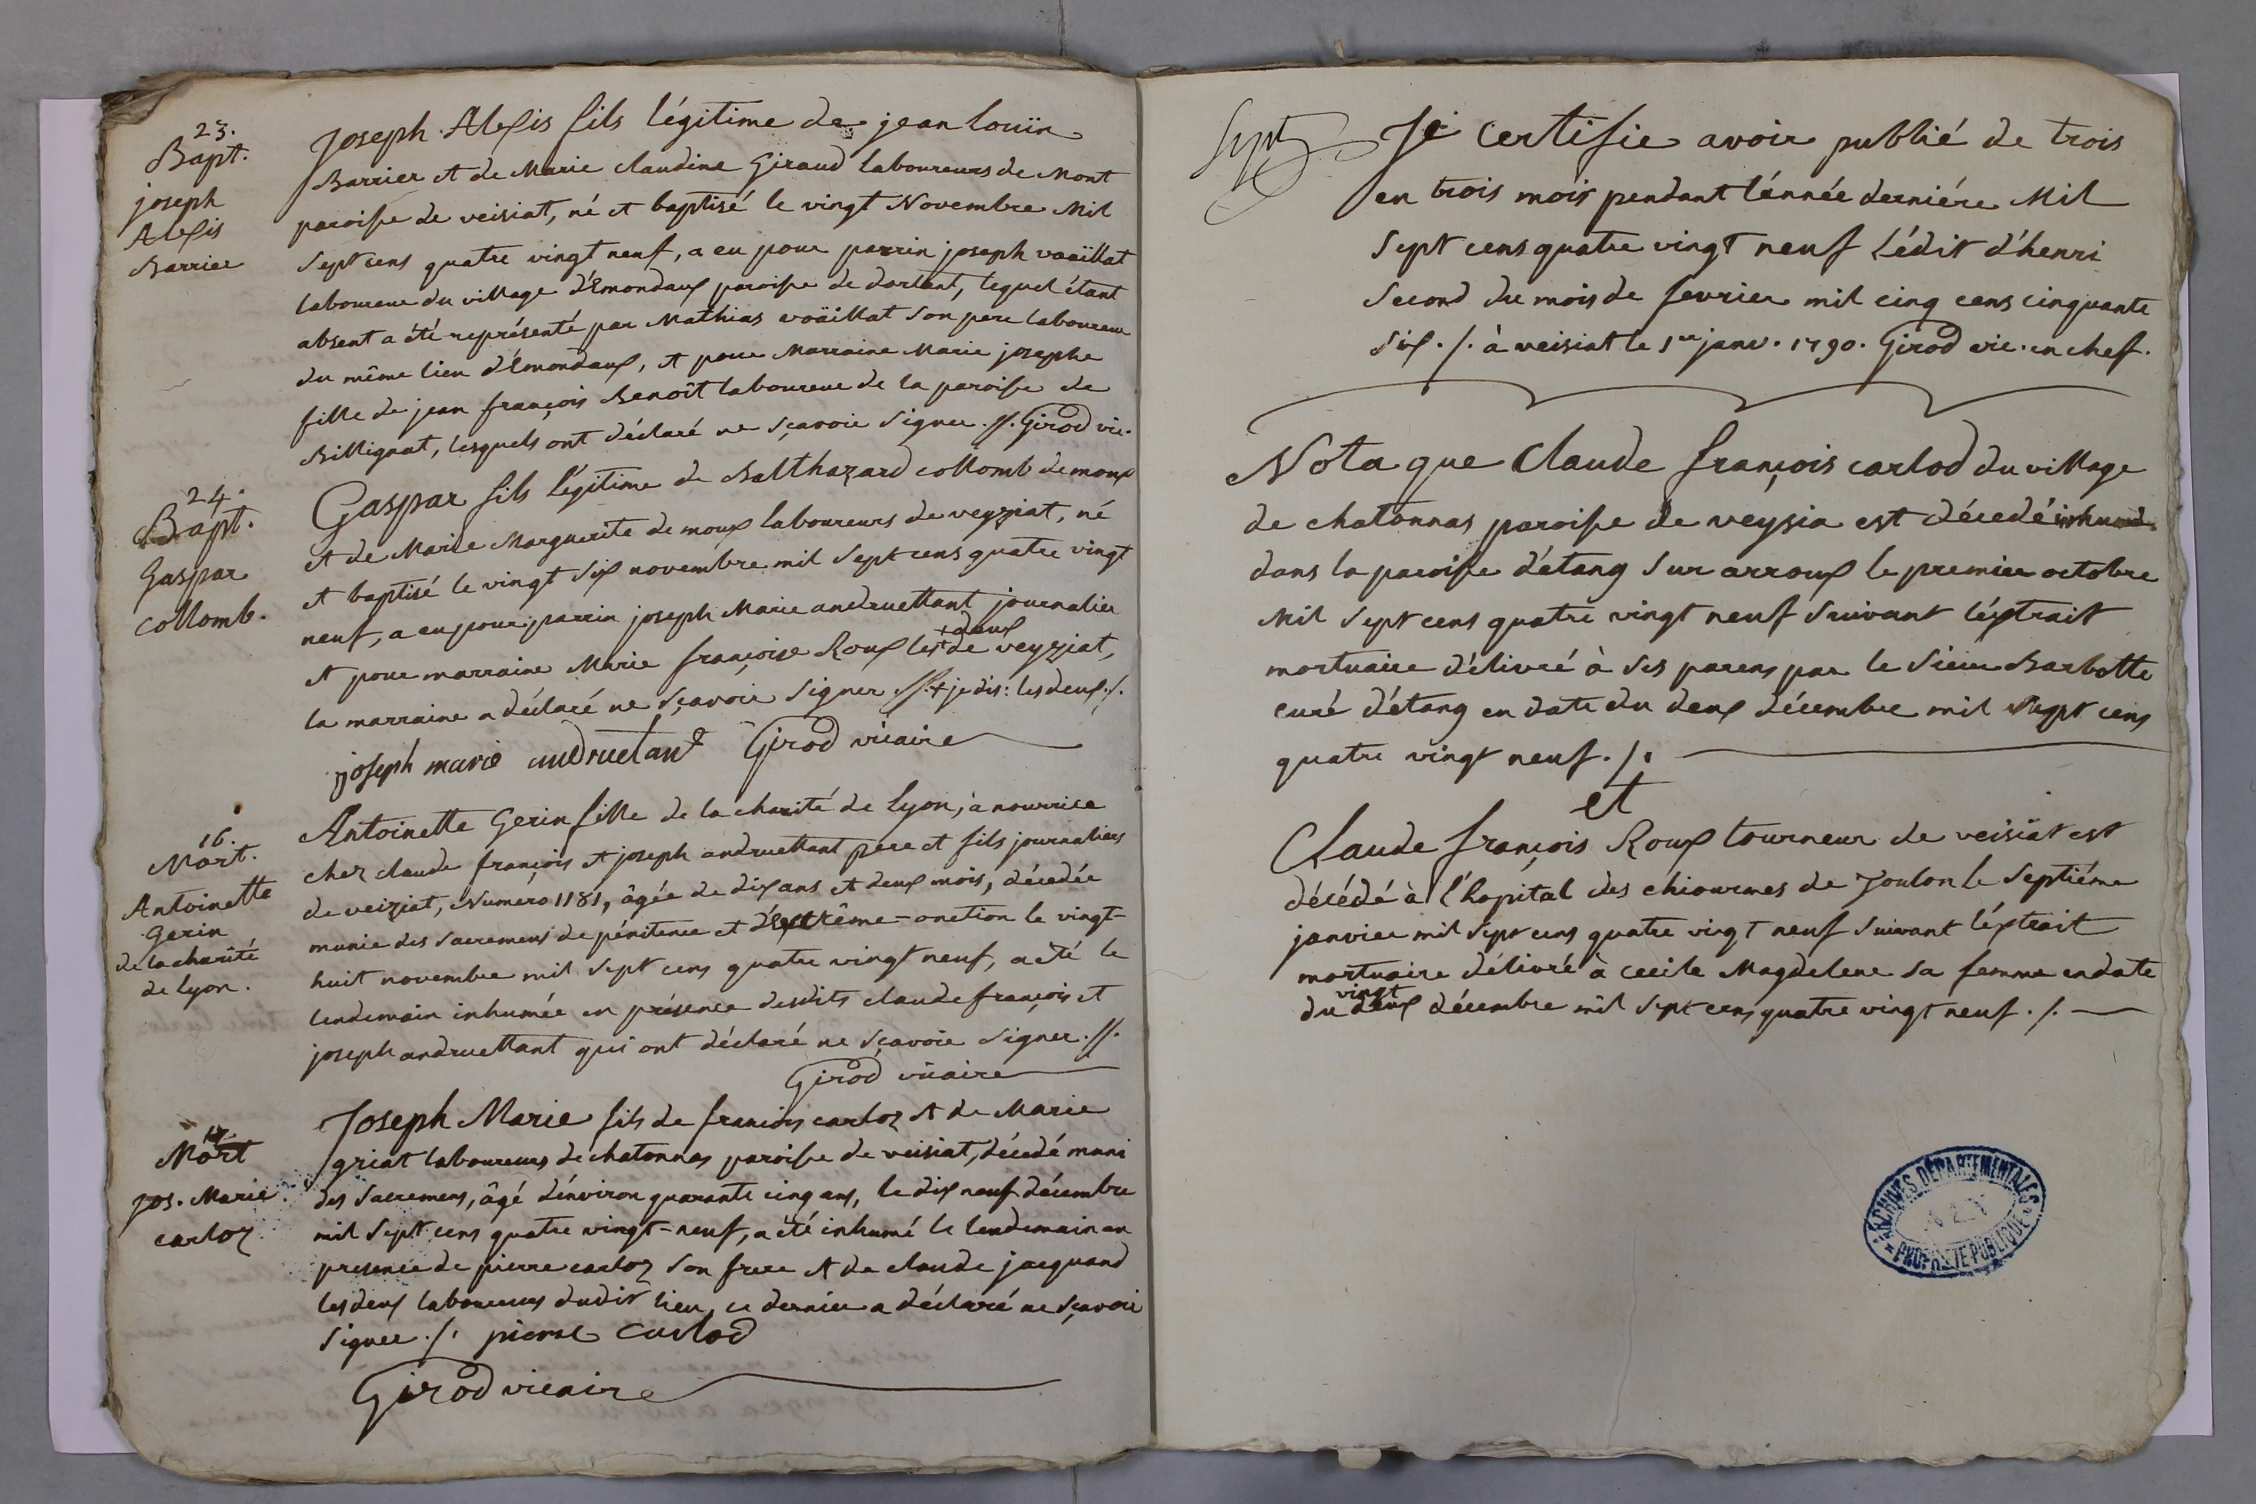 23.
Bapt.
joseph
Alexis
Barrier
Joseph Alexis fils légitime de jean louïs
Barrier et de Marie claudine Giraud laboureurs de Mont
paroisse de veisiat, né et baptisé le vingt Novembre Mil
Sept cens quatre vingt neuf, a eu pour parrin joseph vaoillat
laboureur du village d'Emondaux paroisse de dortant, lequel étant
absent a été représenté par Mathias voäillat son pere laboureur
du même lieu d'Emondaux, et pour Marraine Marie josephe
fille de jean françois Benoît laboureur de la paroisse de
Billignat, lesquels ont déclaré ne sçavoir signer .//. Girod vic.
24.
Bapt.
Gaspar
collomb.
Gaspar fils légitime de Balthazard collomb demoux
et de Marie Marguerite de moux laboureurs de veyziat, né
et baptisé le vingt six novembre mil sept cens quatre vingt
neuf, a eu pour parrin joseph Marie andruettant journalier
et pour marraine Marie françoise Roux les + deux de veyziat,
la marraine a déclaré ne sçavoir signer .//. + je dis : les deux ./.
joseph marie andruetant Girod vicaire
16.
Mort.
Antoinette
Gerin
de la charité
de lyon.
Antoinette Gerin fille de la charité de Lyon, à nourrice
chez claude françois et joseph andruettant pere et fils journaliers
de veiziat, Numéro 1181, âgée de dix ans et deux mois, décedée
munie des sacremens de pénitence et d'Extrême-onction le vingt-
huit novembre mil sept cens quatre vingt neuf, a été le
lendemain inhumée en présence desdits claude françois et
joseph andruettant qui ont déclaré ne sçavoir signer .//.
Girod vicaire
17.
Mort
Jos. Marie
carloz
Joseph Marie fils de francois carloz et de Marie
griat laboureurs de chatonnas paroisse de veisiat, décedé muni
des sacremens, âgé d'énviron quarante cinq ans, le dix neuf décembre
mil sept cens quatre vingt-neuf, a été inhumé le lendemain en
presence de pierre carloz son frere et de claude jacquand
les deux laboureurs dudit lieu, ce dernier a déclaré ne sçavoir
signer ./. pierre carlod
Girod vicaire
Je certifie avoir publié de trois
en trois mois pendant l'énnée derniére Mil
sept cens quatre vingt neuf l'édit d'henri
second du mois de fevrier mil cinq cens cinquante
six ./. à veisiat le 1er janv. 1790. Girod vic. en chef.
Nota que Claude françois carlod du village
de chatonnas paroisse de veysia est décedé
dans la paroisse d'étang sur arroux le premier octobre
Mil sept cens quatre vingt neuf suivant l'éxtrait
mortuaire délivré à ses parens par le sieur Barbotte
curé d'étang en date du deux décembre mil sept cens
quatre vingt neuf ./.
et
Claude françois Roux tourneur de veisiat est
décédé à l'hopital des chiourmes de Toulon le septiéme
janvier mil sept cens quatre vingt neuf suivant l'éxtrait
mortuaire délivré à cecile Magdelene sa femme en date
du vingt deux décembre mil sept cens quatre vingt neuf ./.
ARCHIVES DÉPARTEMENTALES
PROPRIÉTÉ PUBLIQUE